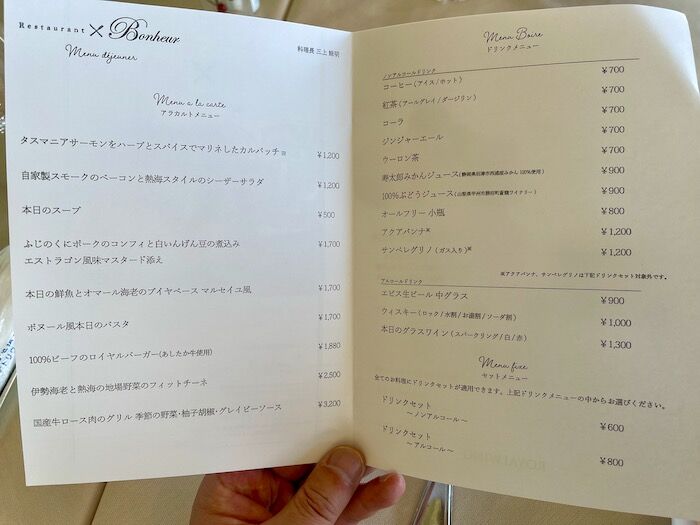 Restaurant × Bonheur
Menu déjeuner
料理長 三上 頼明
Menu a la carte
アラカルトメニュー
タスマニアサーモンをハーブとスパイスでマリネしたカルパッチョ ¥1,200
自家製スモークのベーコンと熱海スタイルのシーザーサラダ ¥1,200
本日のスープ ¥500
ふじのくにポークのコンフィと白いんげん豆の煮込み ¥1,700
エストラゴン風味マスタード添え
本日の鮮魚とオマール海老のブイヤベース マルセイユ風 ¥1,700
ボヌール風本日のパスタ ¥1,700
100%ビーフのロイヤルバーガー(あしたか牛使用) ¥1,880
伊勢海老と熱海の地場野菜のフィットチーネ ¥2,500
国産牛ロース肉のグリル 季節の野菜・柚子胡椒・グレイビーソース ¥3,200
Menu Boire
ドリンクメニュー
ノンアルコールドリンク
コーヒー(アイス/ホット) ¥700
紅茶(アールグレイ/ダージリン) ¥700
コーラ ¥700
ジンジャーエール ¥700
ウーロン茶 ¥700
寿太郎みかんジュース(静岡県沼津市西浦産みかん100%使用) ¥900
100%ぶどうジュース(山梨県甲州市勝沼町蒼龍ワイナリー) ¥900
オールフリー 小瓶 ¥800
アクアパンナ※ ¥1,200
サンペレグリノ(ガス入り)※ ¥1,200
※アクアパンナ、サンペレグリノは下記ドリンクセット対象外です。
アルコールドリンク
エビス生ビール 中グラス ¥900
ウィスキー(ロック/水割/お湯割/ソーダ割) ¥1,000
本日のグラスワイン(スパークリング/白/赤) ¥1,300
Menu fixe
セットメニュー
全てのお料理にドリンクセットが適用できます。上記ドリンクメニューの中からお選びください。
ドリンクセット ¥600
～ノンアルコール～
ドリンクセット ¥800
～アルコール～